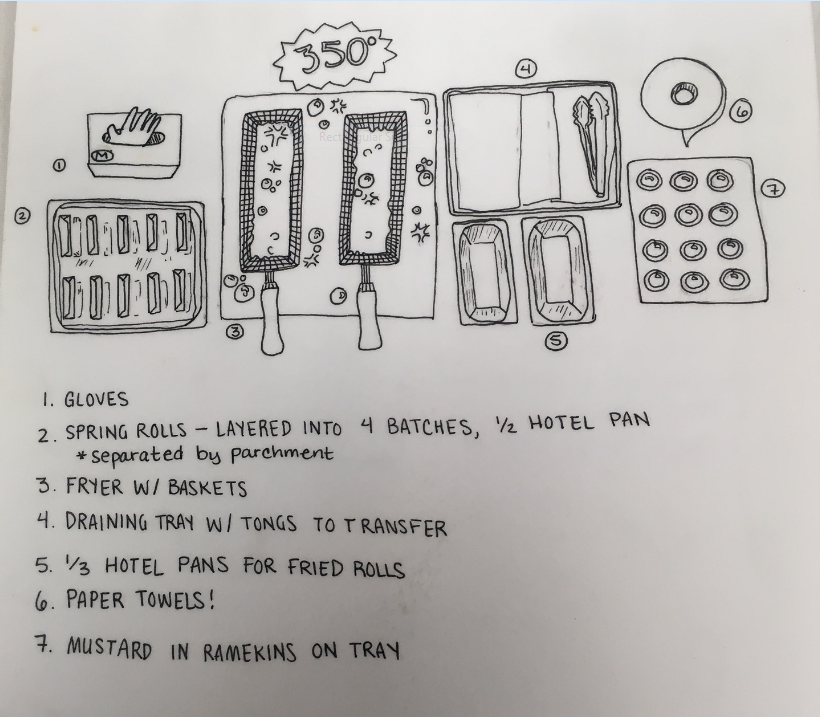 350°
4
6
1
M
7
2
3
5
1. GLOVES
2. SPRING ROLLS – LAYERED INTO 4 BATCHES, 1/2 HOTEL PAN
*separated by parchment
3. FRYER W/ BASKETS
4. DRAINING TRAY W/ TONGS TO TRANSFER
5. 1/3 HOTEL PANS FOR FRIED ROLLS
6. PAPER TOWELS!
7. MUSTARD IN RAMEKINS ON TRAY